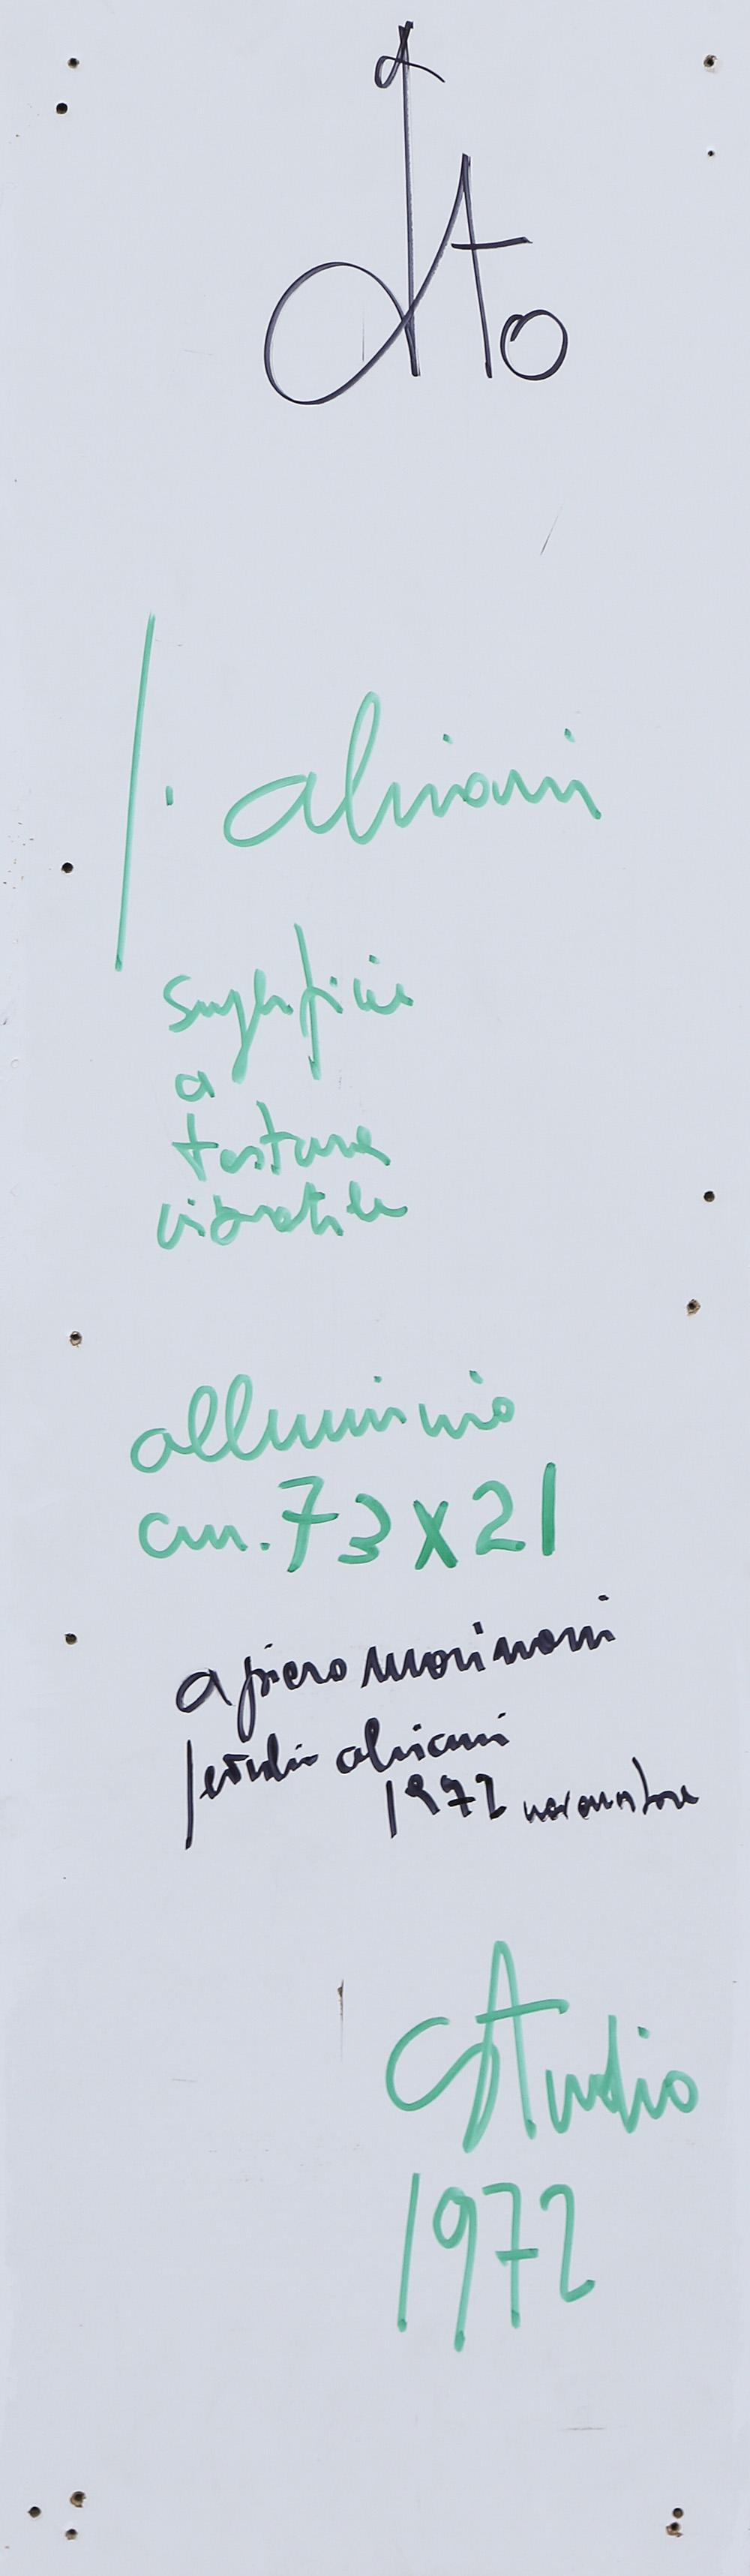 alto
/. alviani
superficie
a
testura
vibratile
alluminio
cm. 73 x 21
a piero
alviani
1972 novembre
Studio
1972